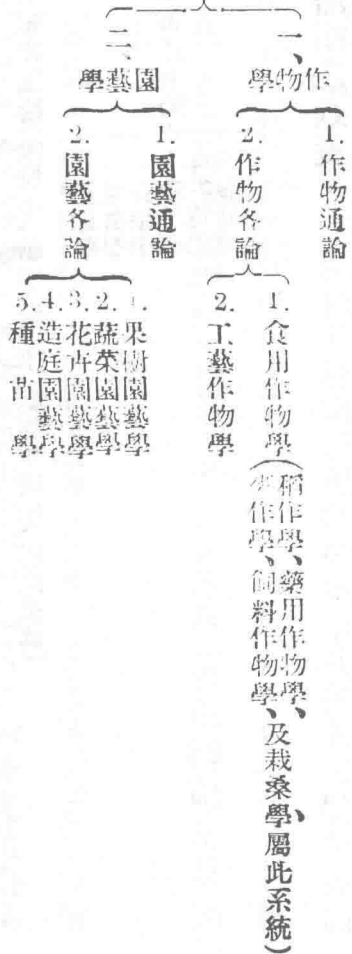 一、作物學
1. 作物通論
2. 作物各論
1. 食用作物學(
稻作學、藥用作物學、
作學、飼料作物學、
及栽桑學、屬此系統)
2. 工藝作物學
二、園藝學
1. 園藝通論
2. 園藝各論
1. 果樹園藝學
2. 蔬菜園藝學
3. 花卉園藝學
4. 造庭園藝學
5. 種苗學